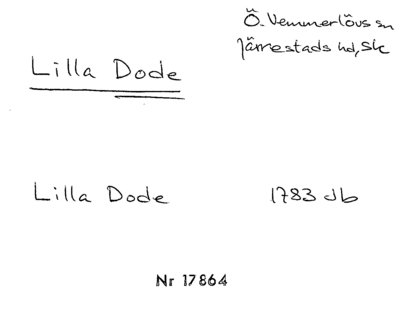 Ö. Vemmerlövs sn
Järrestads hd, Sk
Lilla Dode
Lilla Dode 1783 db
Nr 17864